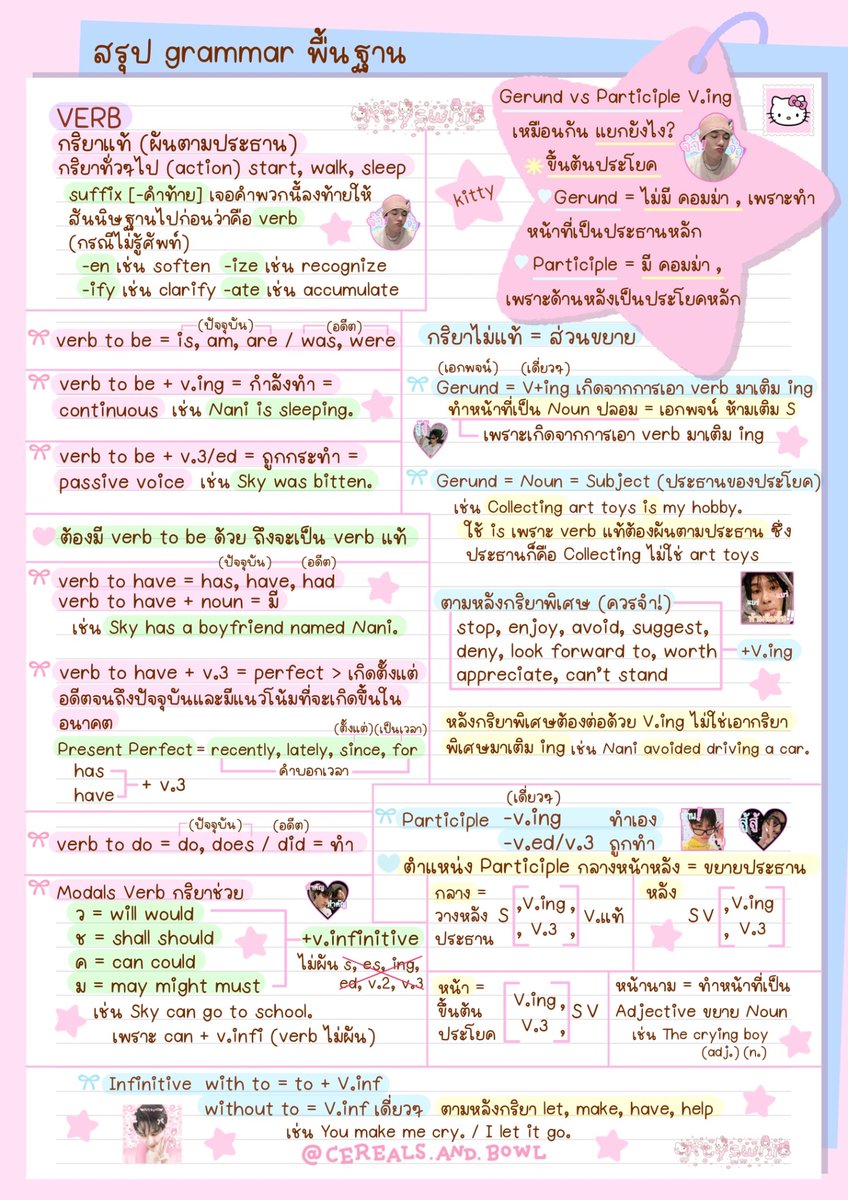 สรุป grammar พื้นฐาน
VERB
กริยาแท้ (ผันตามประธาน)
กริยาทั่วๆไป (action) start, walk, sleep
suffix [-คำท้าย] เจอคำพวกนี้ลงท้ายให้
สันนิษฐานไปก่อนว่าคือ verb
(กรณีไม่รู้ศัพท์)
-en เช่น soften -ize เช่น recognize
-ify เช่น clarify -ate เช่น accumulate
kitty
Gerund vs Participle V.ing
เหมือนกัน แยกยังไง?
ขึ้นต้นประโยค
Gerund = ไม่มี คอมม่า , เพราะทำ
หน้าที่เป็นประธานหลัก
Participle = มี คอมม่า ,
เพราะด้านหลังเป็นประโยคหลัก
(ปัจจุบัน) (อดีต)
verb to be = is, am, are / was, were
verb to be + v.ing = กำลังทำ =
continuous เช่น Nani is sleeping.
verb to be + v.3/ed = ถูกกระทำ =
passive voice เช่น Sky was bitten.
ต้องมี verb to be ด้วย ถึงจะเป็น verb แท้
(ปัจจุบัน) (อดีต)
verb to have = has, have, had
verb to have + noun = มี
เช่น Sky has a boyfriend named Nani.
verb to have + v.3 = perfect > เกิดตั้งแต่
อดีตจนถึงปัจจุบันและมีแนวโน้มที่จะเกิดขึ้นใน
อนาคต
(ตั้งแต่)(เป็นเวลา)
Present Perfect = recently, lately, since, for
คำบอกเวลา
has
have
+ v.3
(ปัจจุบัน) (อดีต)
verb to do = do, does / did = ทำ
Modals Verb กริยาช่วย
ว = will would
ช = shall should
ค = can could
ม = may might must
+v.infinitive
ไม่ผัน s, es, ing,
ed, v.2, v.3
เช่น Sky can go to school.
เพราะ can + v.infi (verb ไม่ผัน)
กริยาไม่แท้ = ส่วนขยาย
(เอกพจน์) (เดี่ยวๆ)
Gerund = V+ing เกิดจากการเอา verb มาเติม ing
ทำหน้าที่เป็น Noun ปลอม = เอกพจน์ ห้ามเติม S
เพราะเกิดจากการเอา verb มาเติม ing
Gerund = Noun = Subject (ประธานของประโยค)
เช่น Collecting art toys is my hobby.
ใช้ is เพราะ verb แท้ต้องผันตามประธาน ซึ่ง
ประธานก็คือ Collecting ไม่ใช่ art toys
ตามหลังกริยาพิเศษ (ควรจำ!)
stop, enjoy, avoid, suggest,
deny, look forward to, worth
appreciate, can't stand
+V.ing
หลังกริยาพิเศษต้องต่อด้วย V.ing ไม่ใช่เอากริยา
พิเศษมาเติม ing เช่น Nani avoided driving a car.
(เดี่ยวๆ)
Participle -v.ing ทำเอง
-v.ed/v.3 ถูกทำ
ตำแหน่ง Participle กลางหน้าหลัง = ขยายประธาน
กลาง =
วางหลัง
ประธาน
S ,V.ing , V.แท้
, V.3 ,
หลัง
S V ,V.ing
, V.3
หน้า =
ขึ้นต้น
ประโยค
V.ing, S V
V.3 ,
หน้านาม = ทำหน้าที่เป็น
Adjective ขยาย Noun
เช่น The crying boy
(adj.) (n.)
Infinitive with to = to + V.inf
without to = V.inf เดี่ยวๆ ตามหลังกริยา let, make, have, help
เช่น You make me cry. / I let it go.
@CEREALS.AND.BOWL